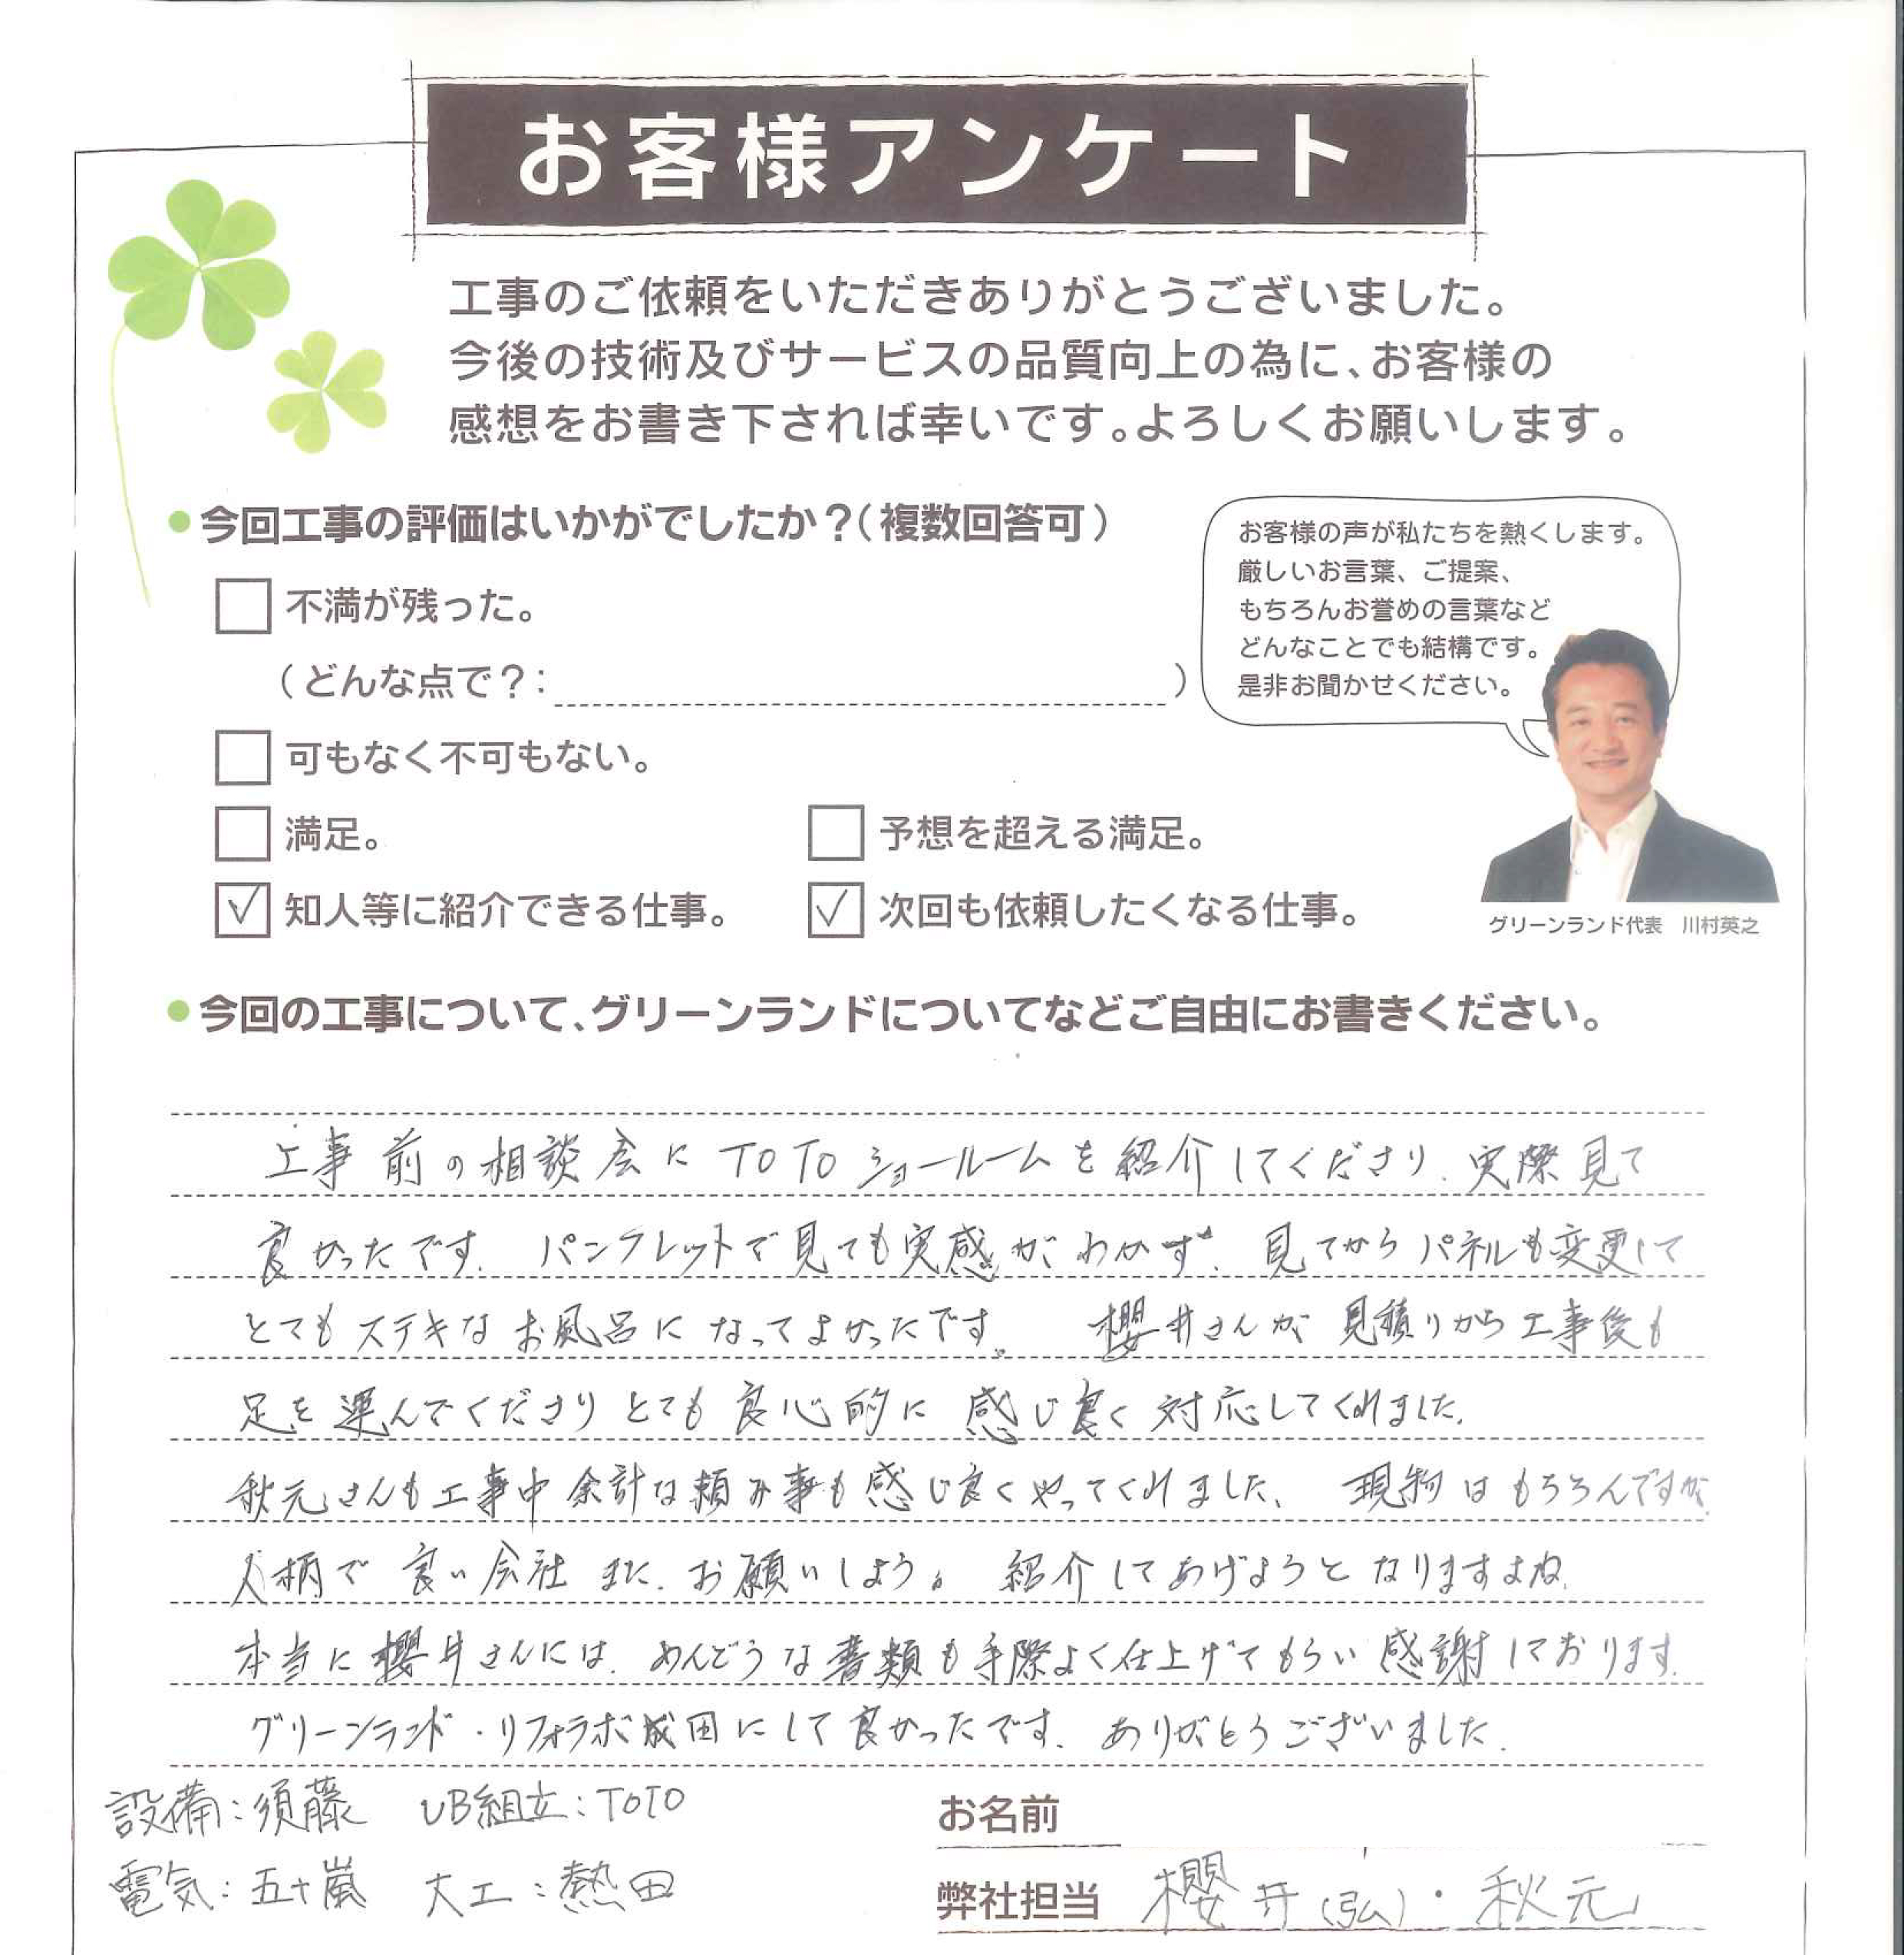 お客様アンケート
工事のご依頼をいただきありがとうございました。
今後の技術及びサービスの品質向上の為に、お客様の
感想をお書き下されば幸いです。よろしくお願いします。
●今回工事の評価はいかがでしたか？（複数回答可）
お客様の声が私たちを熱くします。
厳しいお言葉、ご提案、
もちろんお誉めの言葉など
どんなことでも結構です。
是非お聞かせください。
不満が残った。
（どんな点で？：）
可もなく不可もない。
満足。
予想を超える満足。
✓ 知人等に紹介できる仕事。
✓ 次回も依頼したくなる仕事。
グリーンランド代表 川村英之
●今回の工事について、グリーンランドについてなどご自由にお書きください。
工事前の相談会にTOTOショールームを紹介してくださり、実際見て
良かったです。パンフレットで見ても実感がわかず、見てからパネルも変更して
とてもステキなお風呂になってよかったです。櫻井さんが見積りから工事後も
足を運んでくださりとても良心的に感じ良く対応してくれました。
秋元さんも工事中余計な頼み事も感じ良くやってくれました、現物はもちろんですが、
人柄で良い会社また、お願いしよう。紹介してあげようとなりますよね。
本当に櫻井さんには、めんどうな書類も手際よく仕上げてもらい感謝しております。
グリーンランド・リフォラボ成田にして良かったです。ありがとうございました。
設備：須藤 UB組立：TOTO
電気：五十嵐 大工：熱田
お名前
弊社担当 櫻井(弘)・秋元